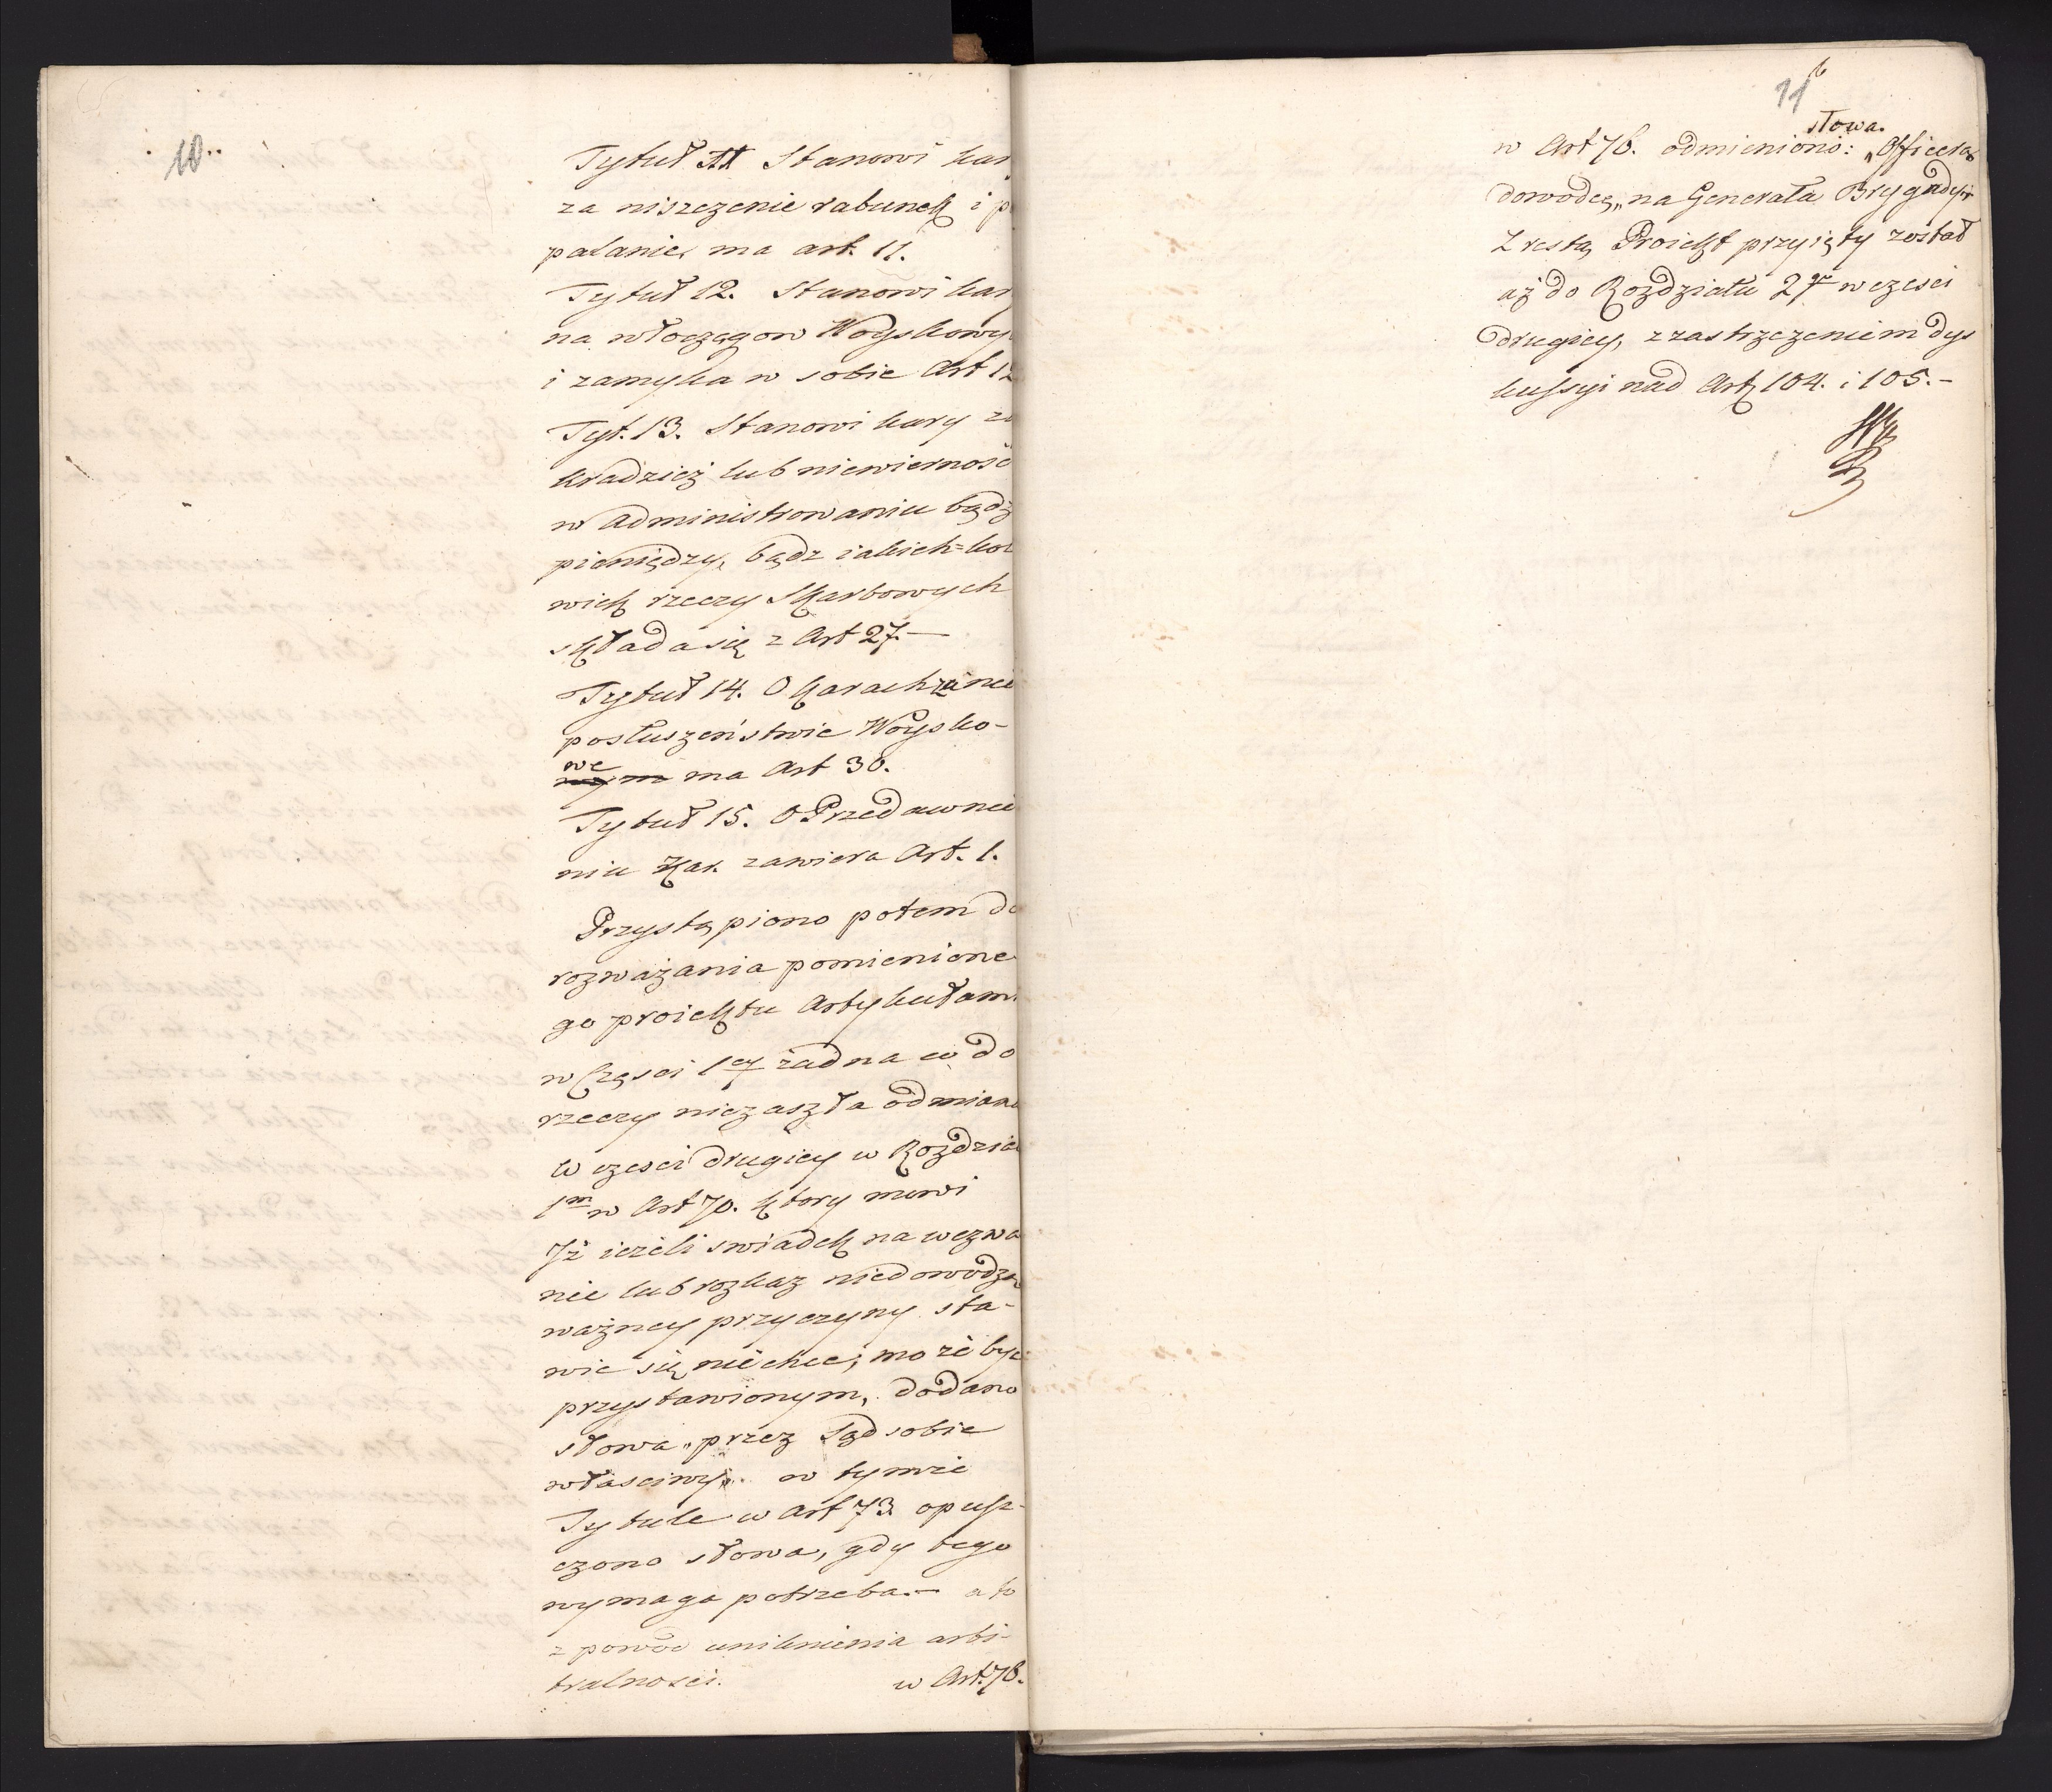 10
Tytuł 11 Stanowi kar
za niszczenie rabunek i p
palanie, ma art. 11.
Tytuł 12. Stanowi kar
na włoczęgow Woyskowy
i zamyka w sobie Art 12
Tyt. 13. Stanowi kary za
kradzież lub niewierność
w administrowaniu bądz
pieniędzy, bądz iakich=kol
wiek rzeczy Skarbowych
składa się z Art 27.—
Tytuł 14. O karach za nie
posłuszeństwie Woysko-
we
ma Art 30.
Tytuł 15. O Przedawnie
niu kar. zawiera Art. 1.
Przystąpiono potem do
rozważania pomienione
go proiektu Artykułami
w Częsci 1ey żadna co do
rzeczy niezaszła odmiana
W częsci drugiey w Rozdzia
1m w Art 70. ktory mowi
Iż ieżeli swiadek na wezwa
nie lub rozkaz niedowodzą
ważney przyczyny sta-
wic się niechce, może byc
przystawionym, dodano
słowa „przez Sąd sobie
własciwy„. w tymże
Tytule w Art 73. opusz-
czono słowa, gdy tego
wymaga potrzeba.— a to
z powod uniknienia arbi-
tralnosci.
w Art. 76.
11
6
słowa.
w Art 76. odmieniono: „Officera
dowodcę„ na Generała Brygady
Zresztą Proiekt przyięty został
aż do Rozdziału 2go w częsci
drugiey, z zastrzeżeniem dys
kussyi nad Art 104. i 105.—